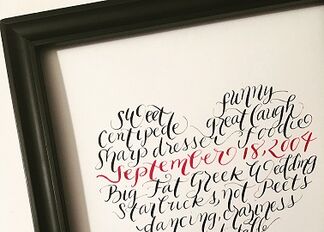 sweet funny
centipede great laugh
sharp dresser foodie
September 18, 2004
Big Fat Greek Wedding
Starbucks, not Peets
dancing, craziness